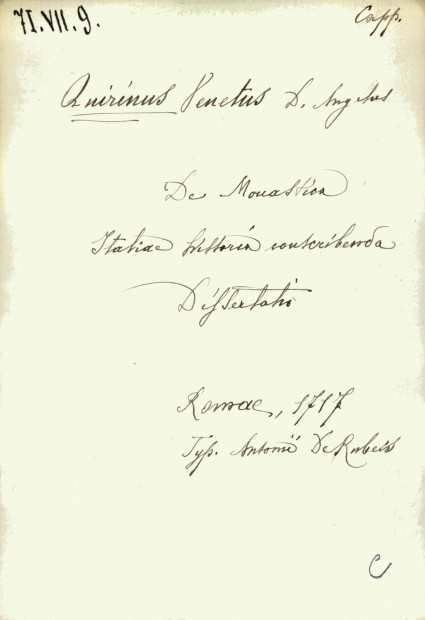 71.VII.9.
Capp.
Quirinus Venetus D. Angelus
De Monastica
Italiae historia conscribenda
Dissertatio
Romae, 1717
Typ. Antonii De Rubeis
C